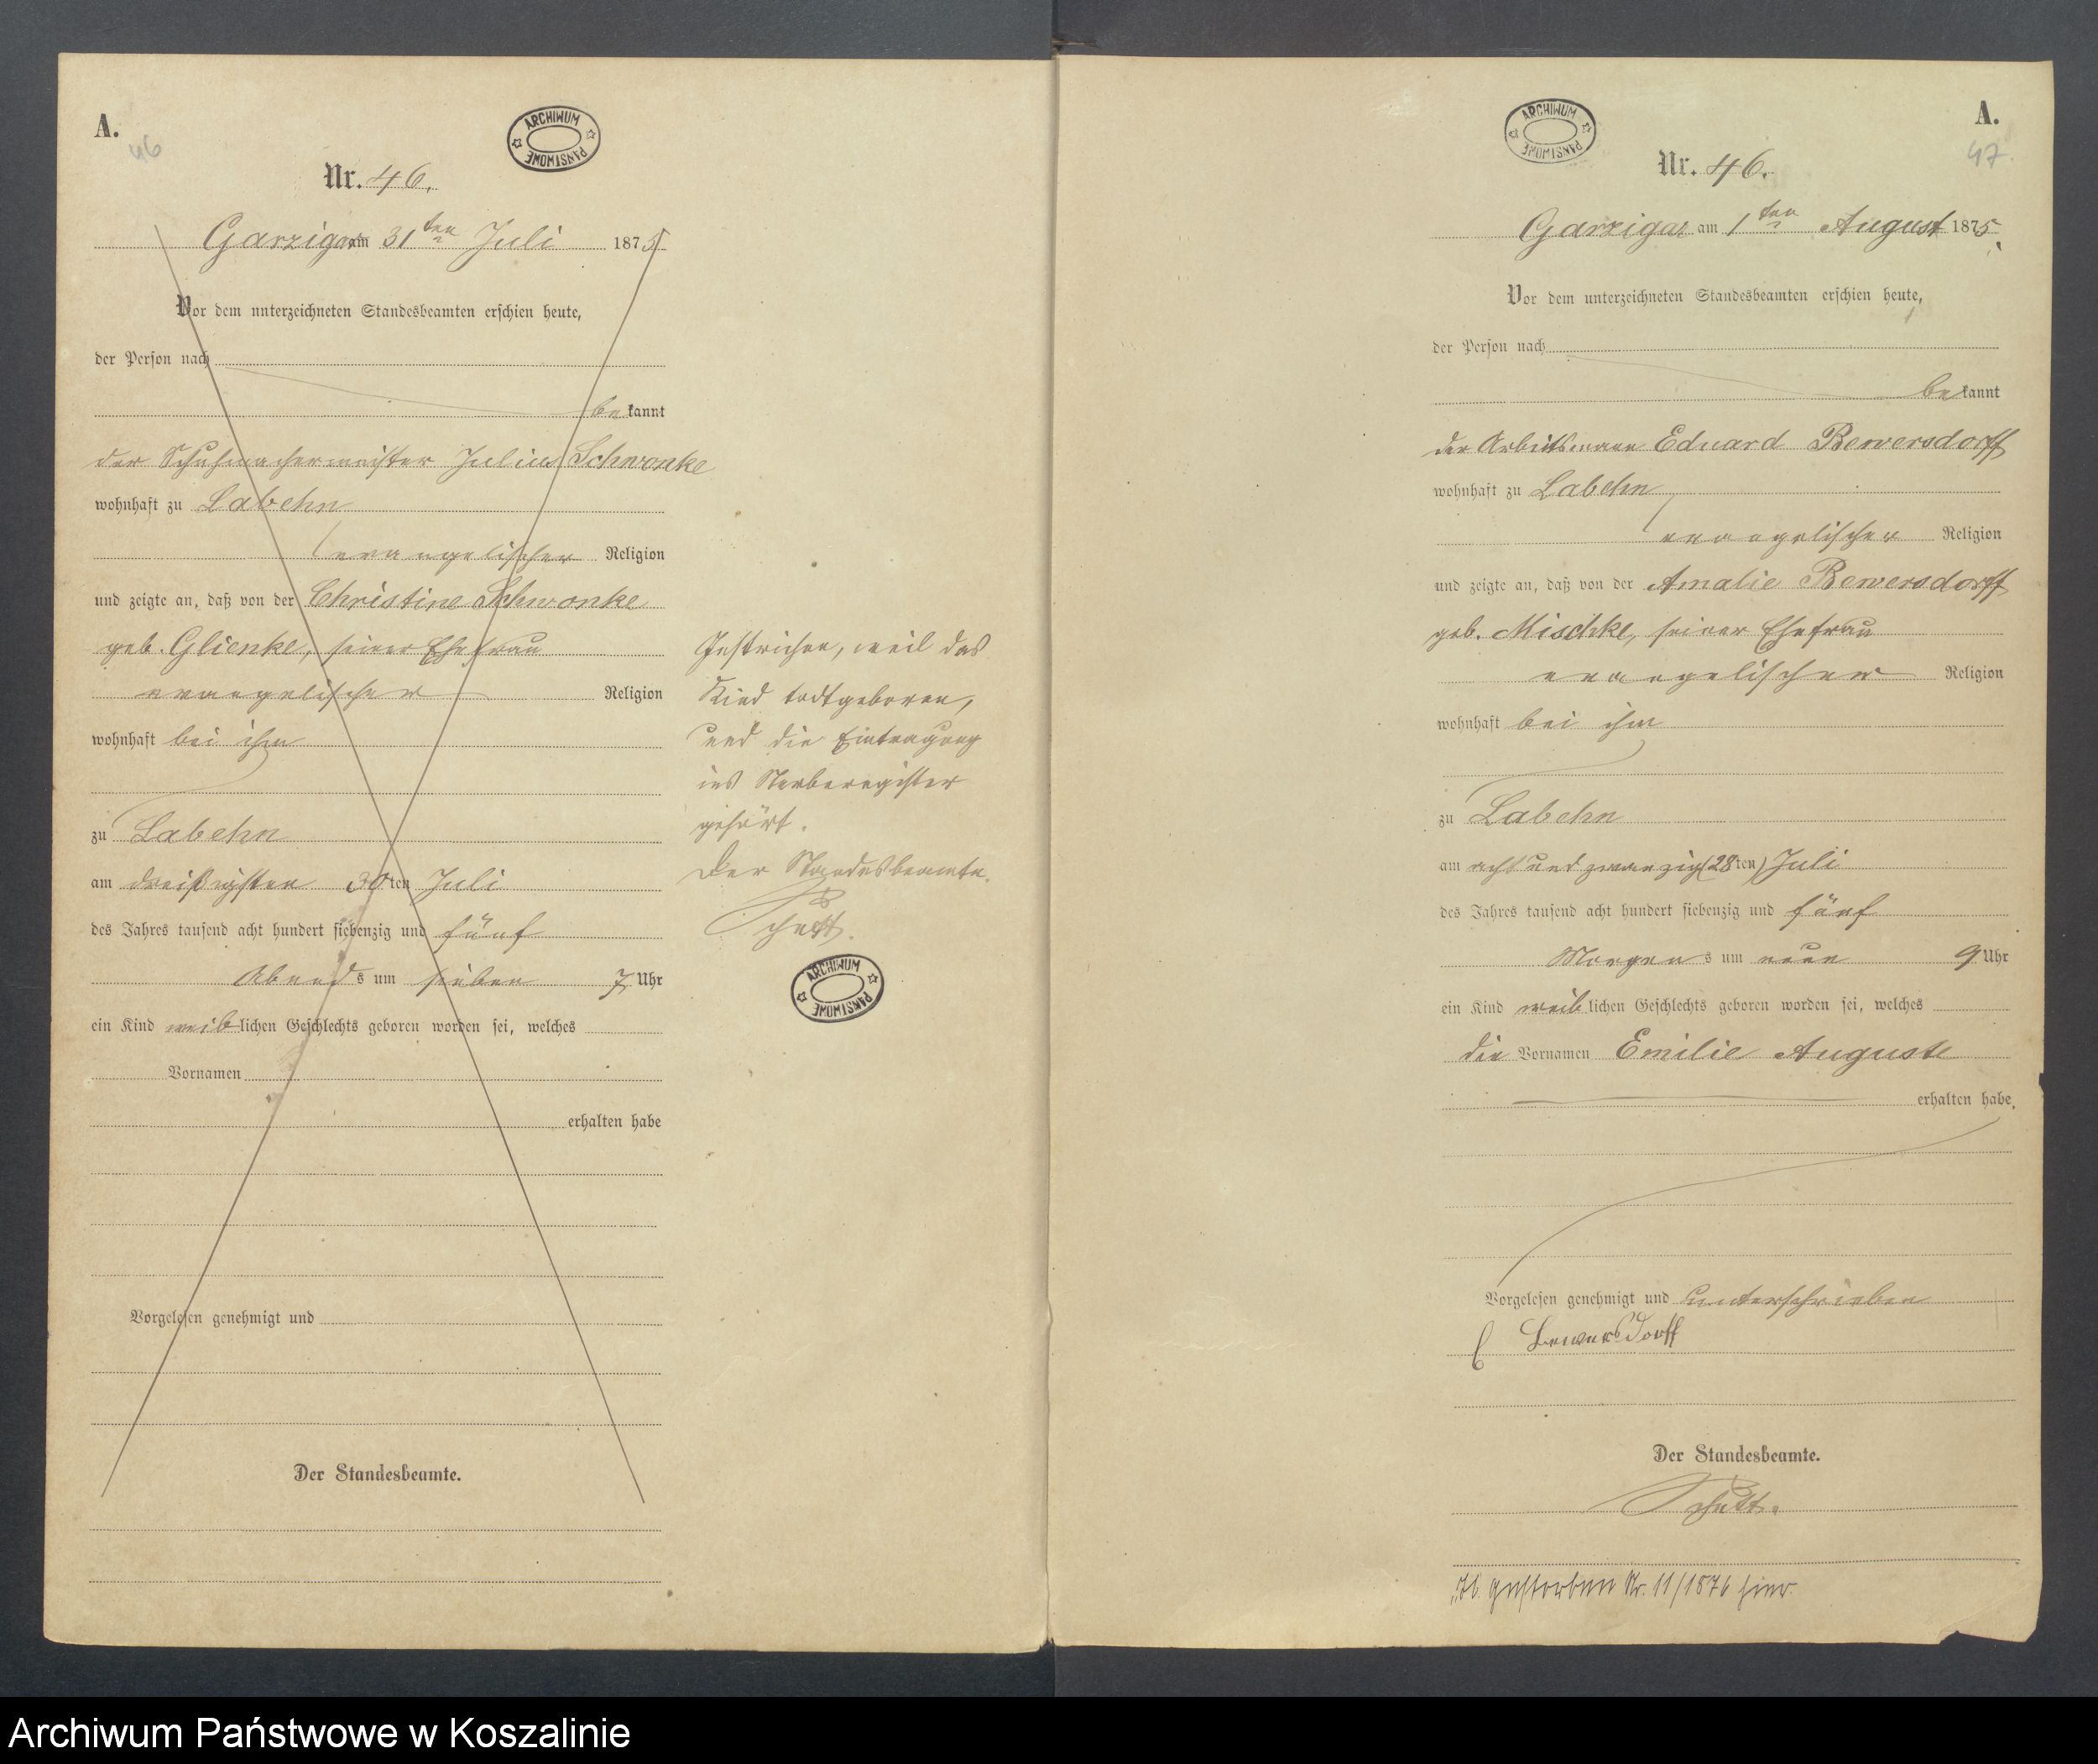 A.
46
ARCHIWUM PAŃSTWOWE
Nr. 46.
Garzigar am 31ten Juli 1875
Vor dem unterzeichneten Standesbeamten erschien heute,
der Person nach
bekannt
der Schuhmachermeister Julius Schwonke
wohnhaft zu Labehn
evangelischer Religion
und zeigte an, daß von der Christine Schwonke
geb. Glienke, seiner Ehefrau
evangelischer Religion
wohnhaft bei ihm
zu Labehn
am dreißigsten 30ten Juli
des Jahres tausend acht hundert siebenzig und fünf
Abends um sieben 7 Uhr
ein Kind weiblichen Geschlechts geboren worden sei, welches
Vornamen
erhalten habe
Vorgelesen genehmigt und
Der Standesbeamte.
Gestrichen, weil das
Kind todtgeboren,
und die Eintragung
ins Sterberegister
gehört.
Der Standesbeamte.
Schütt.
ARCHIWUM PAŃSTWOWE
ARCHIWUM PAŃSTWOWE
A.
47.
Nr. 46.
Garzigar am 1ten August 1875.
Vor dem unterzeichneten Standesbeamten erschien heute,
der Person nach
bekannt
der Arbeitsmann Eduard Bewersdorff
wohnhaft zu Labehn
evangelischer Religion
und zeigte an, daß von der Amalie Bewersdorff
geb. Mischke, seiner Ehefrau
evangelischer Religion
wohnhaft bei ihm
zu Labehn
am acht und zwanzig (28ten) Juli
des Jahres tausend acht hundert siebenzig und fünf
Morgens um neun 9 Uhr
ein Kind weiblichen Geschlechts geboren worden sei, welches
die Vornamen Emilie Auguste
erhalten habe.
Vorgelesen genehmigt und unterschrieben
E Bewersdorff
Der Standesbeamte.
Schütt.
gestorben Nr. 11/1876 hier.
Archiwum Państwowe w Koszalinie